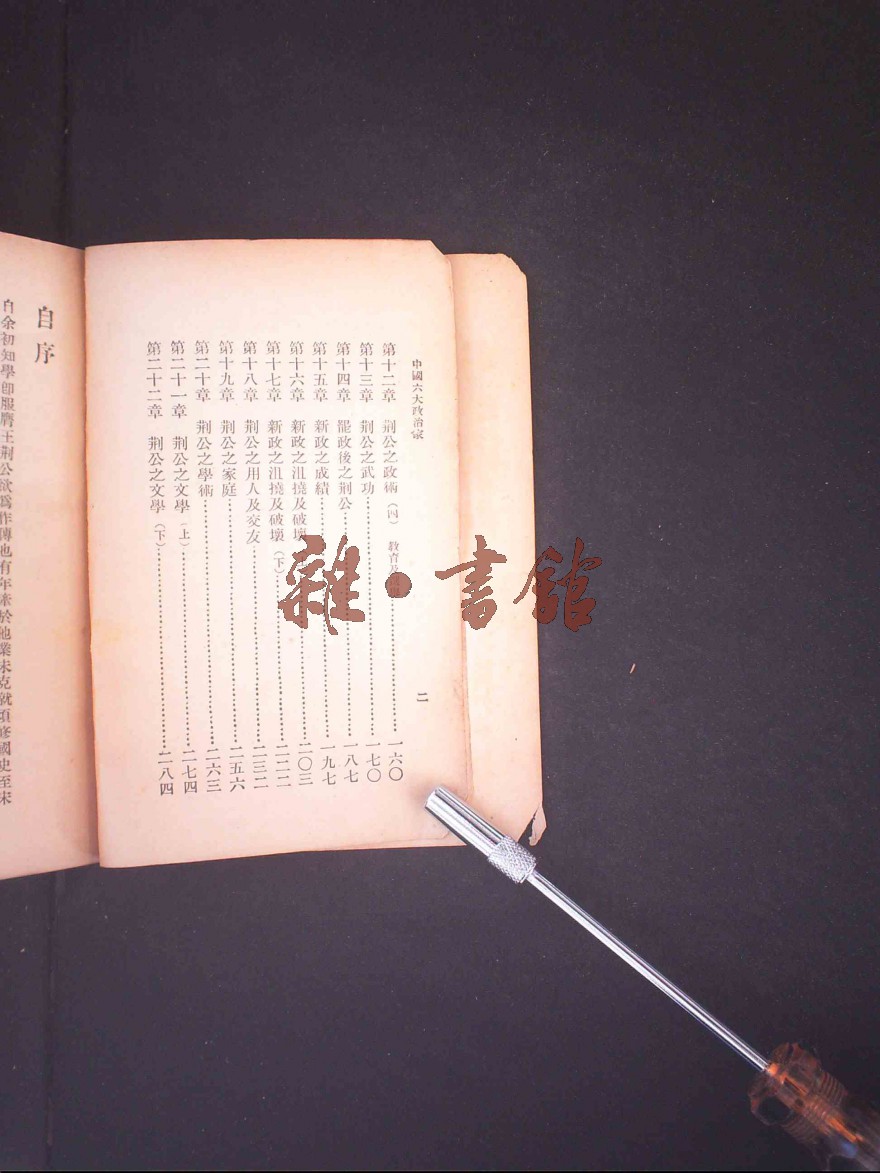 中國六大政治家 二
第十二章 荆公之政術（四） 教育及 一六〇
第十三章 荆公之武功 一七〇
第十四章 罷政後之荆公 一八七
第十五章 新政之成績 一九七
第十六章 新政之沮撓及破壞 二〇三
第十七章 新政之沮撓及破壞（下） 二二二
第十八章 荆公之用人及交友 二三二
第十九章 荆公之家庭 二五六
第二十章 荆公之學術 二六三
第二十一章 荆公之文學（上） 二七四
第二十二章 荆公之文學（下） 二八四
自序
自余初知學卽服膺王荆公欲爲作傳也有年牽於他業未克就頃修國史至宋
雜·書館